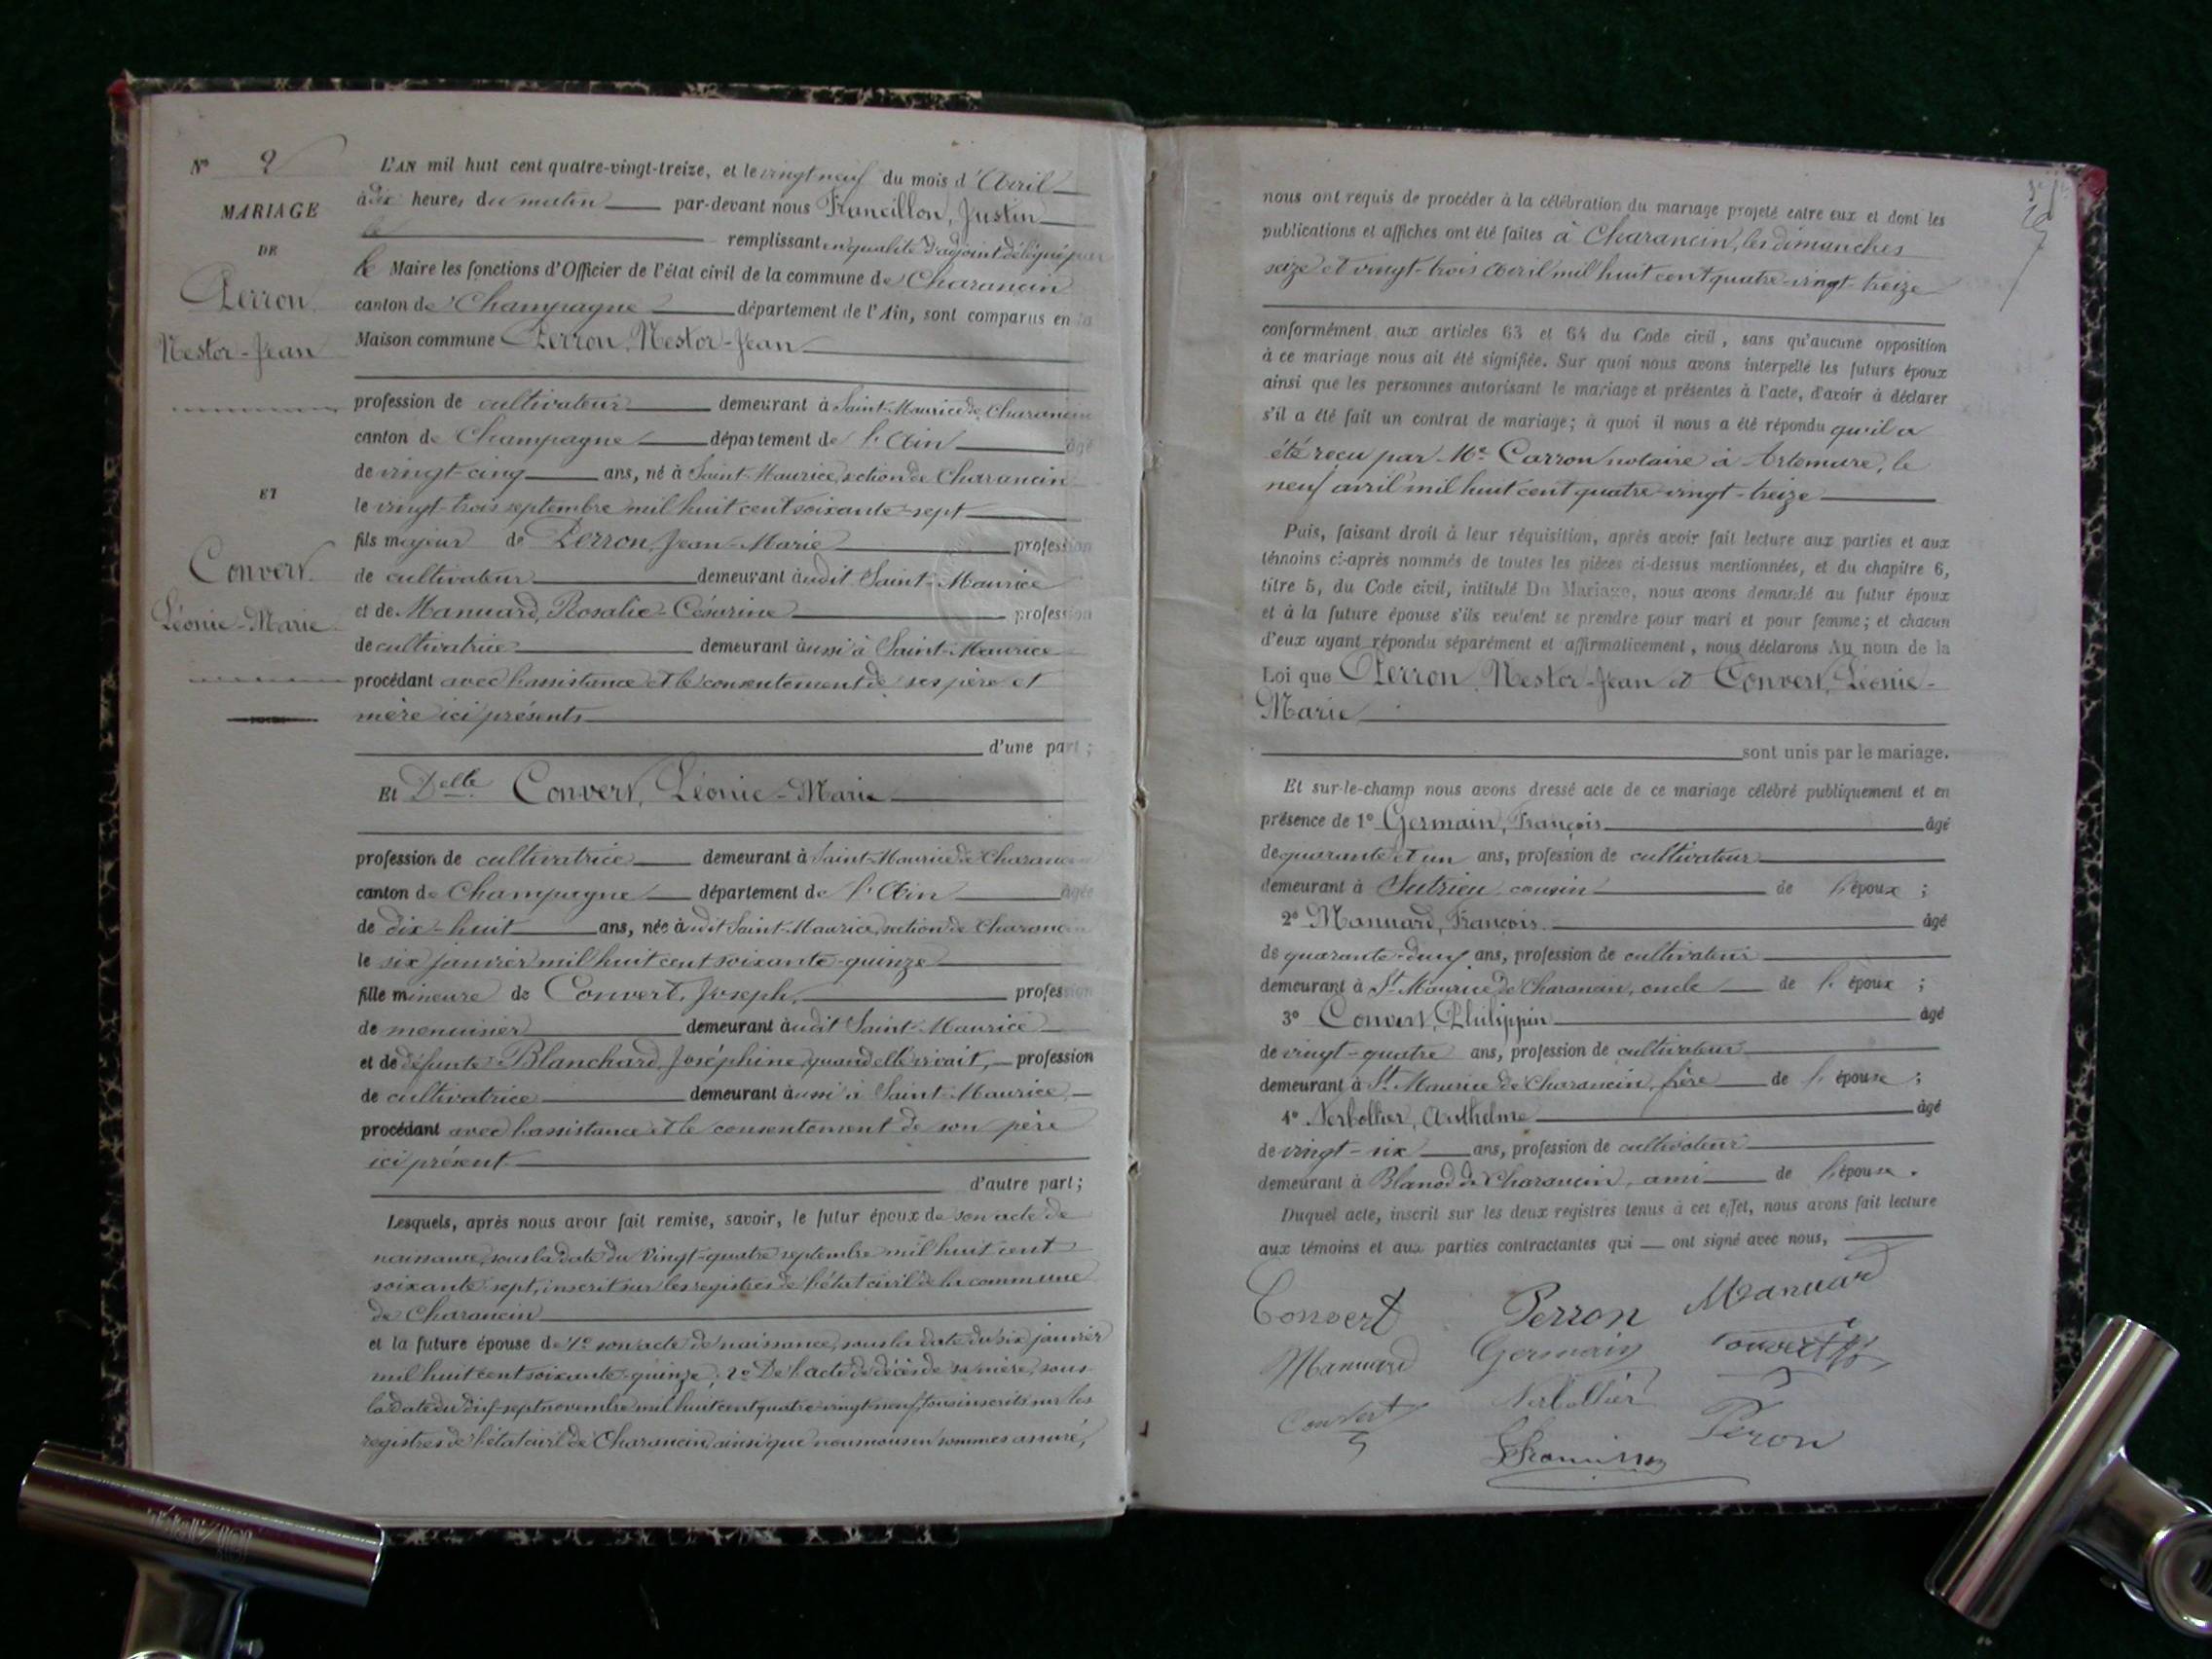 N° 2
MARIAGE
DE
Perron
Nestor-Jean
ET
Convert
Léonie-Marie
L'AN mil huit cent quatre-vingt-treize, et le vingt neuf du mois d'Avril
à dix heures du matin par-devant nous Francillon, Justin
remplissant en qualité d'adjoint délégué par
le Maire les fonctions d'Officier de l'état civil de la commune de Charancin
canton de Champagne département de l'Ain, sont comparus en la
Maison commune Perron, Nestor-Jean
profession de cultivateur demeurant à Saint-Maurice de Charancin
canton de Champagne département de l'Ain âgé
de vingt-cinq ans, né à Saint-Maurice, section de Charancin
le vingt-trois septembre mil huit cent soixante-sept
fils majeur de Perron, Jean-Marie profession
de cultivateur demeurant audit Saint-Maurice
et de Manuard, Rosalie-Césarine profession
de cultivatrice demeurant aussi à Saint-Maurice
procédant avec l'assistance et le consentement de ses père et
mère ici présents
d'une part ;
Et Delle Convert, Léonie-Marie
profession de cultivatrice demeurant à Saint-Maurice de Charancin
canton de Champagne département de l'Ain âgée
de dix-huit ans, née audit Saint-Maurice, section de Charancin
le six janvier mil huit cent soixante-quinze
fille mineure de Convert, Joseph, profession
de menuisier demeurant audit Saint-Maurice
et de défunte Blanchard, Joséphine, quand elle vivait, profession
de cultivatrice demeurant aussi à Saint-Maurice,
procédant avec l'assistance et le consentement de son père
ici présent
d'autre part ;
Lesquels, après nous avoir fait remise, savoir, le futur époux de son acte de
naissance, sous la date du vingt-quatre septembre mil huit cent
soixante-sept, inscrit sur les registres de l'état civil de la commune
de Charancin
et la future épouse de 1° son acte de naissance, sous la date du six janvier
mil huit cent soixante-quinze, 2° De l'acte de décès de sa mère, sous
la date du dix-sept novembre mil huit cent quatre-vingt-neuf, tous inscrits sur les
registres de l'état civil de Charancin ainsi que nous nous en sommes assuré,
nous ont requis de procéder à la célébration du mariage projeté entre eux et dont les
publications et affiches ont été faites à Charancin, les dimanches
seize et vingt-trois avril mil huit cent quatre-vingt-treize
conformément aux articles 63 et 64 du Code civil, sans qu'aucune opposition
à ce mariage nous ait été signifiée. Sur quoi nous avons interpellé les futurs époux
ainsi que les personnes autorisant le mariage et présentes à l'acte, d'avoir à déclarer
s'il a été fait un contrat de mariage ; à quoi il nous a été répondu qu'il a
été reçu par Me Carron notaire à Artemare, le
neuf avril mil huit cent quatre-vingt-treize
Puis, faisant droit à leur réquisition, après avoir fait lecture aux parties et aux
témoins ci-après nommés de toutes les pièces ci-dessus mentionnées, et du chapitre 6,
titre 5, du Code civil, intitulé Du Mariage, nous avons demandé au futur époux
et à la future épouse s'ils veulent se prendre pour mari et pour femme ; et chacun
d'eux ayant répondu séparément et affirmativement, nous déclarons Au nom de la
Loi que Perron, Nestor-Jean et Convert, Léonie-
Marie
sont unis par le mariage.
Et sur-le-champ nous avons dressé acte de ce mariage célébré publiquement et en
présence de 1° Germain, François âgé
de quarante et un ans, profession de cultivateur
demeurant à Sutrieu cousin de l'époux ;
2° Manuard, François âgé
de quarante-deux ans, profession de cultivateur
demeurant à St Maurice de Charancin, oncle de l'époux ;
3° Convert, Philippin âgé
de vingt-quatre ans, profession de cultivateur
demeurant à St Maurice de Charancin, frère de l'épouse ;
4° Nerbollier, Anthelme âgé
de vingt-six ans, profession de cultivateur
demeurant à Blanod de Charancin, ami de l'épouse.
Duquel acte, inscrit sur les deux registres tenus à cet effet, nous avons fait lecture
aux témoins et aux parties contractantes qui ont signé avec nous,
Convert Perron Manuard
Manuard Germain Convert
Convert Nerbollier Peron